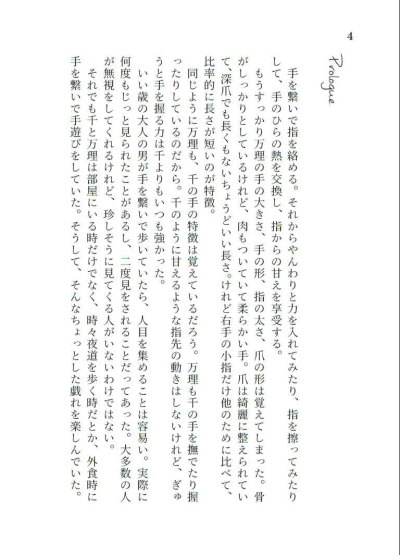 4
Prologue
手を繋いで指を絡める。それからやんわりと力を入れてみたり、指を擦ってみたり
して、手のひらの熱を交換し、指からの甘えを享受する。
もうすっかり万理の手の大きさ、手の形、指の太さ、爪の形は覚えてしまった。骨
がしっかりとしているけれど、肉もついていて柔らかい手。爪は綺麗に整えられてい
て、深爪でも長くもないちょうどいい長さ。けれど右手の小指だけ他のために比べて、
比率的に長さが短いのが特徴。
同じように万理も、千の手の特徴は覚えているだろう。万理も千の手を撫でたり握
ったりしているのだから。千のように甘えるような指先の動きはしないけれど、ぎゅ
うと手を握る力は千よりもいつも強かった。
いい歳の大人の男が手を繋いで歩いていたら、人目を集めることは容易い。実際に
何度もじっと見られたことがあるし、二度見をされることだってあった。大多数の人
が無視をしてくれるけれど、珍しそうに見てくる人がいないわけではない。
それでも千と万理は部屋にいる時だけでなく、時々夜道を歩く時だとか、外食時に
手を繋いで手遊びをしていた。そうして、そんなちょっとした戯れを楽しんでいた。